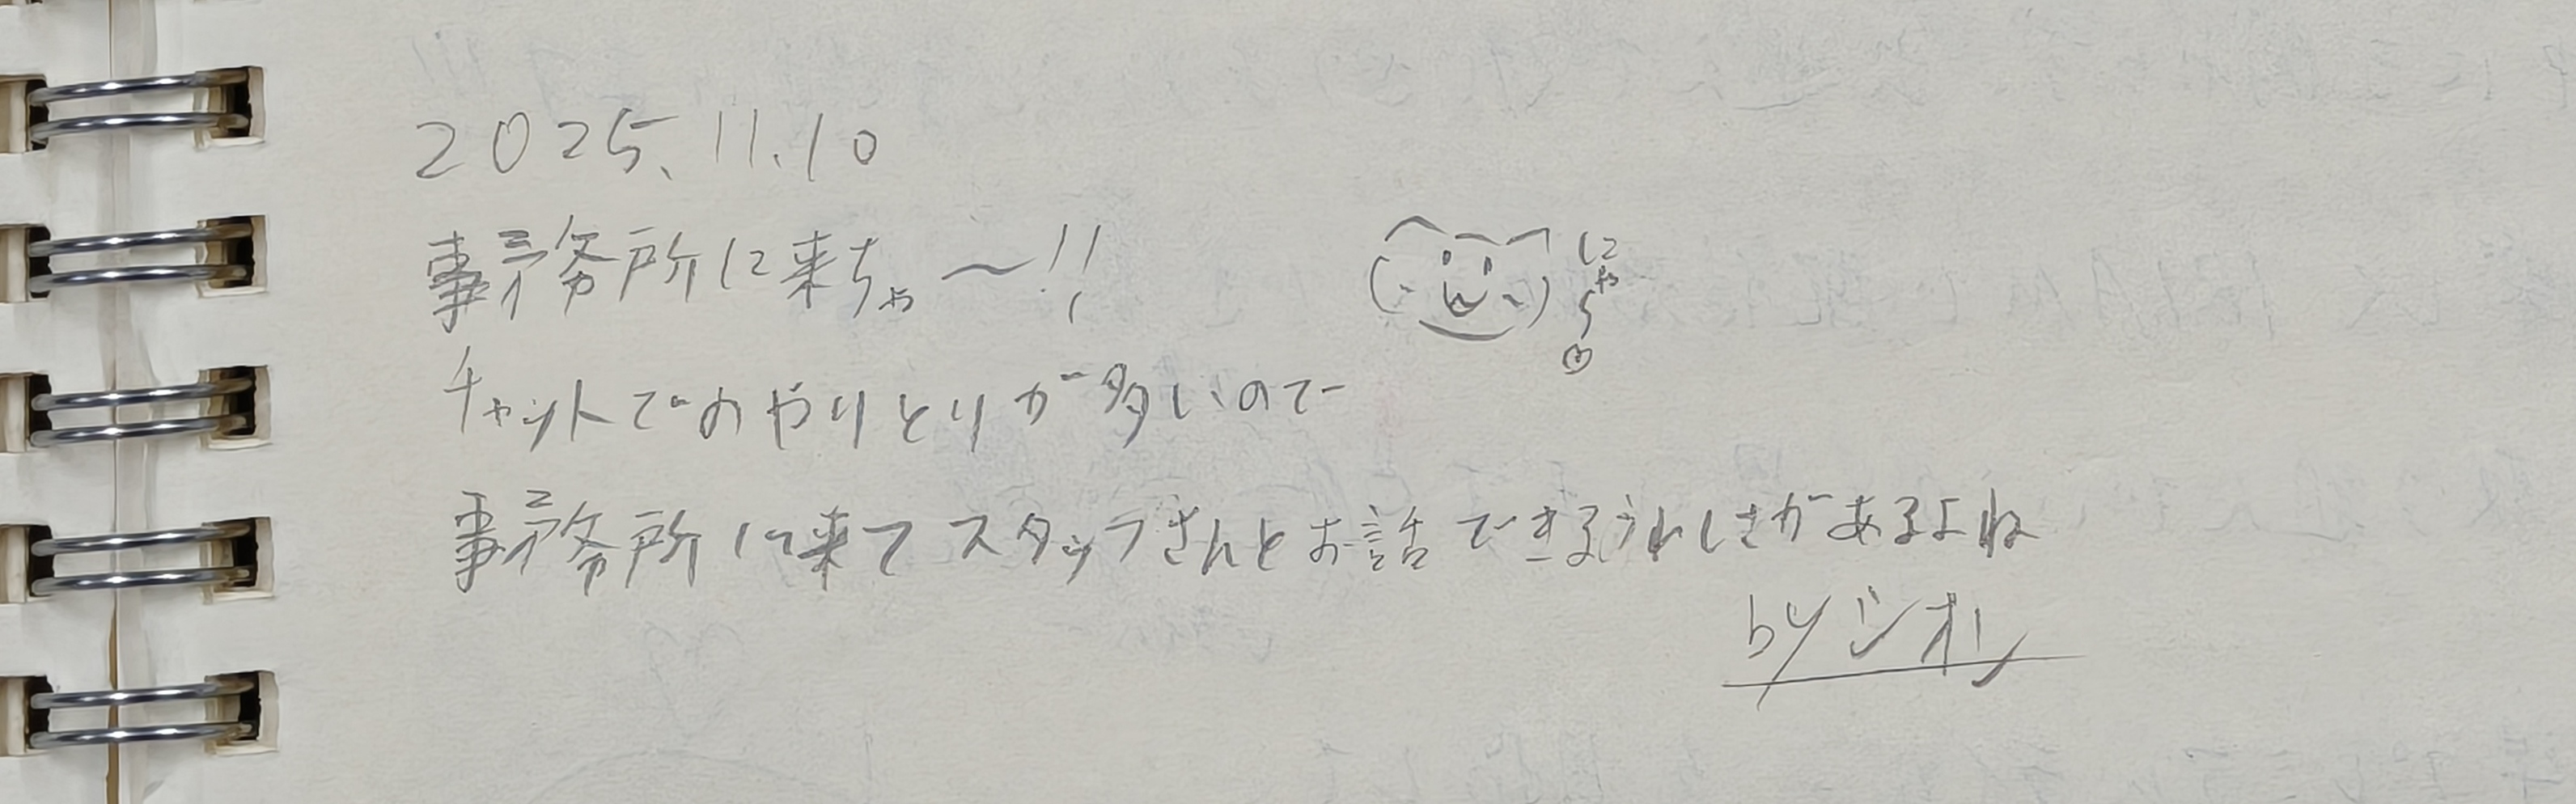 2025.11.10
事務所に来ちゃ〜!!
にゃら
チャットでのやりとりが多いので
事務所に来てスタッフさんとお話できるうれしさがあるよね
byシオン